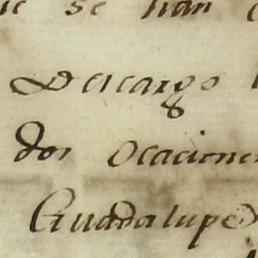 se han
Descargo
dos Ocacione
Guadalupe